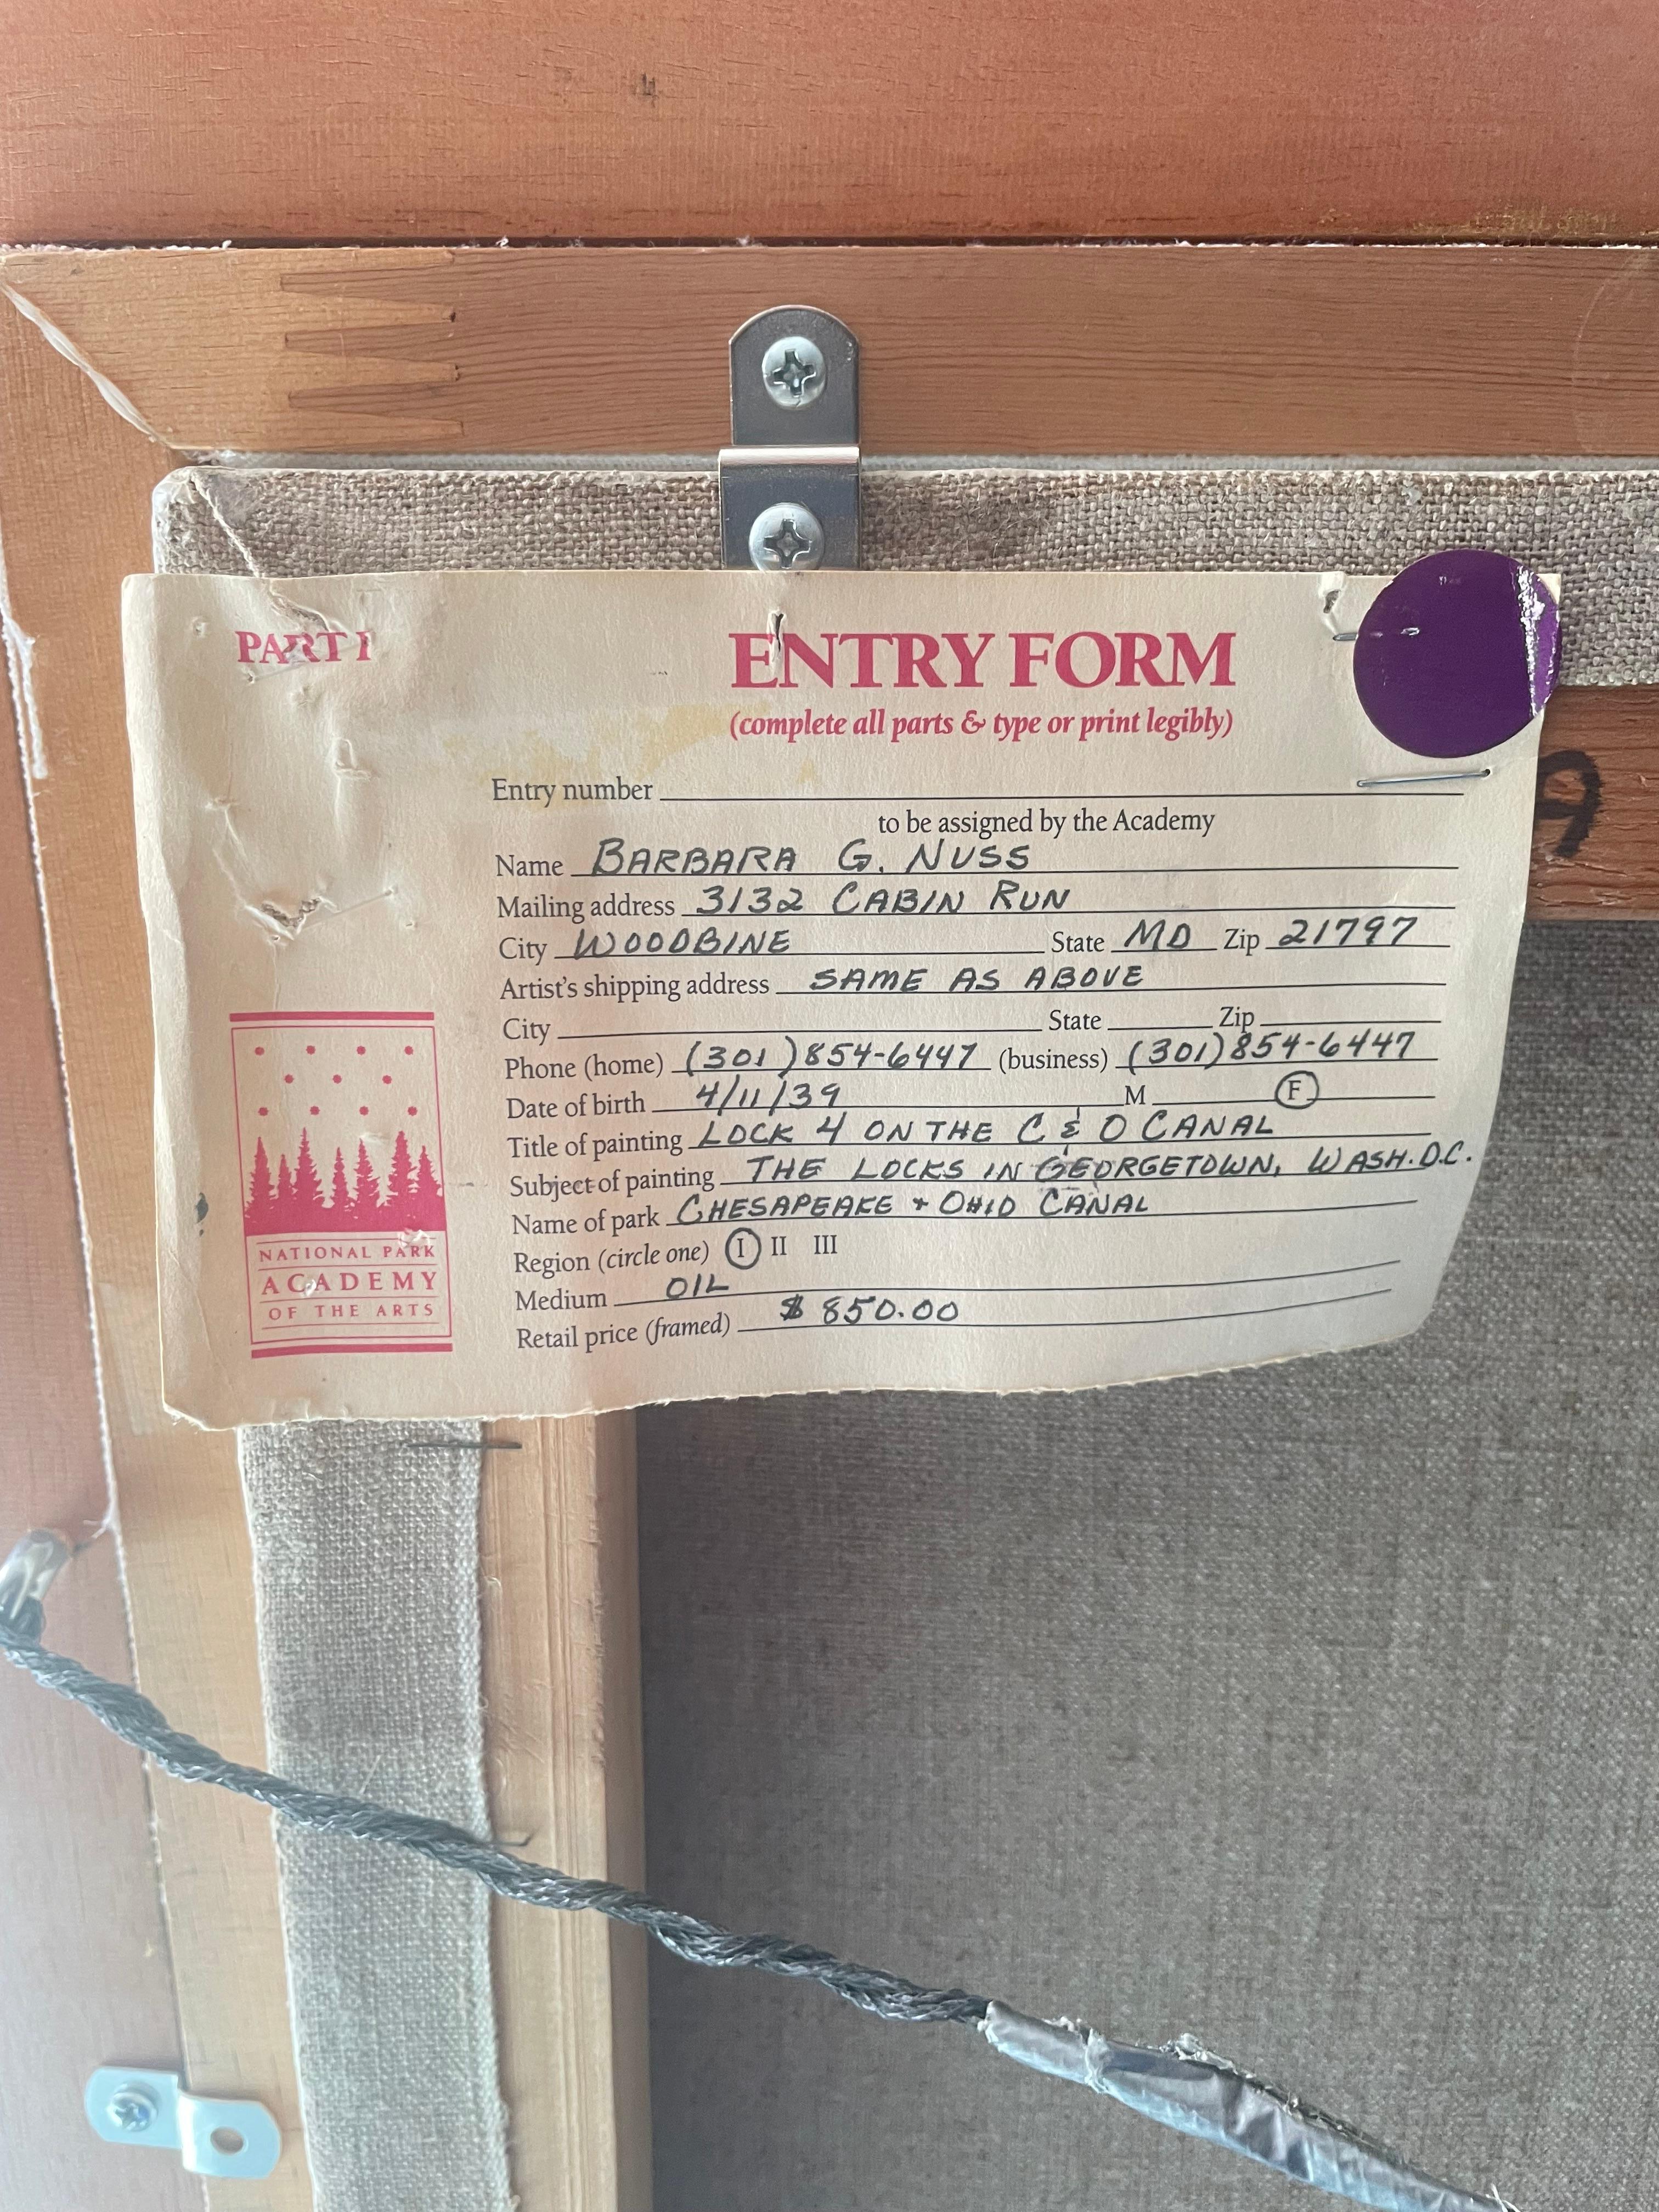 PART I
ENTRY FORM
(complete all parts & type or print legibly)
Entry number
to be assigned by the Academy
Name BARBARA G. NUSS
Mailing address 3132 CABIN RUN
City WOODBINE State MD Zip 21797
Artist's shipping address SAME AS ABOVE
City State Zip
Phone (home) (301) 854-6447 (business) (301) 854-6447
Date of birth 4/11/39 M F
Title of painting LOCK 4 ON THE C & O CANAL
Subject of painting THE LOCKS IN GEORGETOWN, WASH. D.C.
Name of park CHESAPEAKE + OHIO CANAL
Region (circle one) I II III
Medium OIL
Retail price (framed) $ 850.00
NATIONAL PARK
ACADEMY
OF THE ARTS